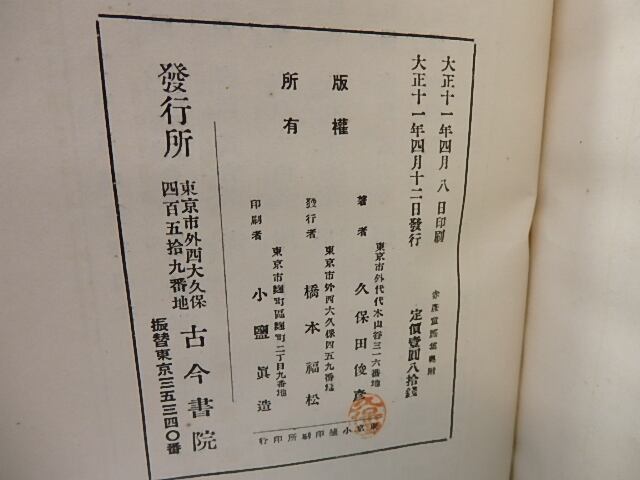 大正十一年四月八日印刷
大正十一年四月十二日發行
定價壹圓八拾錢
版權
所有
著者
東京市外代代木山谷三一六番地
久保田俊彦
發行者
東京市外西大久保四五九番地
橋本福松
印刷者
東京市麹町區麹町二丁目九番地
小鹽眞造
發行所
東京市外西大久保
四百五拾九番地
古今書院
振替東京三五三四〇番